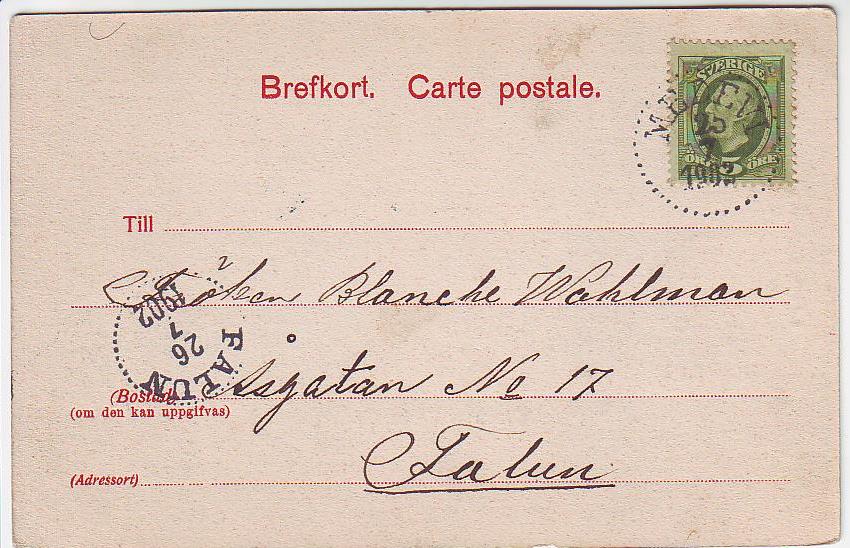 Brefkort. Carte postale.
SVERIGE
5
ÖRE
25
7
1902
Till
Fröken Blanche Wahlman
1902
7
26
FALUN
Åsgatan No 17
(Bostad)
(om den kan uppgifvas)
Falun
(Adressort)